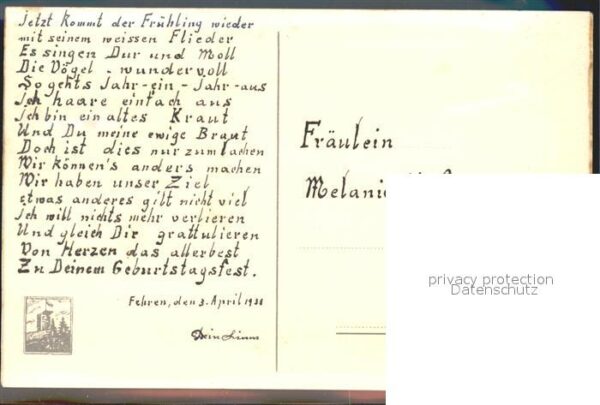 Jetzt kommt der Frühling wieder
mit seinem weissen Flieder
Es singen Dur und Moll
Die Vögel - wundervoll
So gehts Jahr-ein-Jahr-aus
Ich haare einfach aus
Ich bin ein altes Kraut
Und Du meine ewige Braut
Doch ist dies nur zum lachen
Wir können's anders machen
Wir haben unser Ziel
Etwas anderes gilt nicht viel
Ich will nichts mehr verlieren
Und gleich Dir grattulieren
Von Herzen das allerbest
Zu Deinem Geburtstagsfest.
Fehren, den 3. April 19
Dein
Fräulein
Melanie
privacy protection
Datenschutz